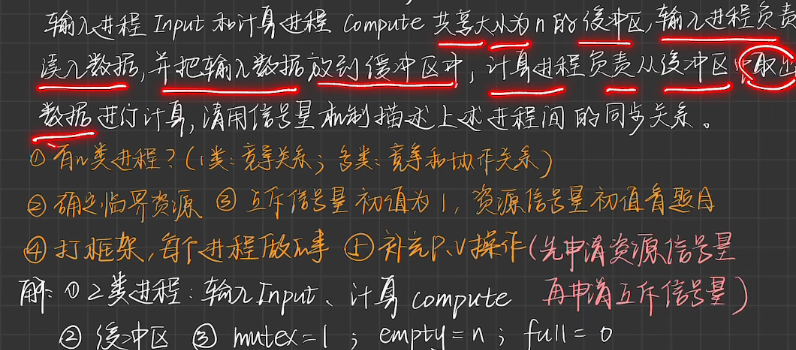 输入进程 Input 和计算进程 Compute 共享大小为 n 的缓冲区,输入进程负责
读入数据,并把输入数据放到缓冲区中,计算进程负责从缓冲区中取出
数据进行计算,请用信号量机制描述上述进程间的同步关系。
①有n类进程?(1类:竞争关系;多类:竞争和协作关系)
②确定临界资源 ③互斥信号量初值为1,资源信号量初值看题目
④打框架,每个进程做啥事 ⑤补充P、V操作(先申请资源信号量
解:①2类进程:输入Input、计算compute 再申请互斥信号量)
②缓冲区 ③mutex=1;empty=n;full=0